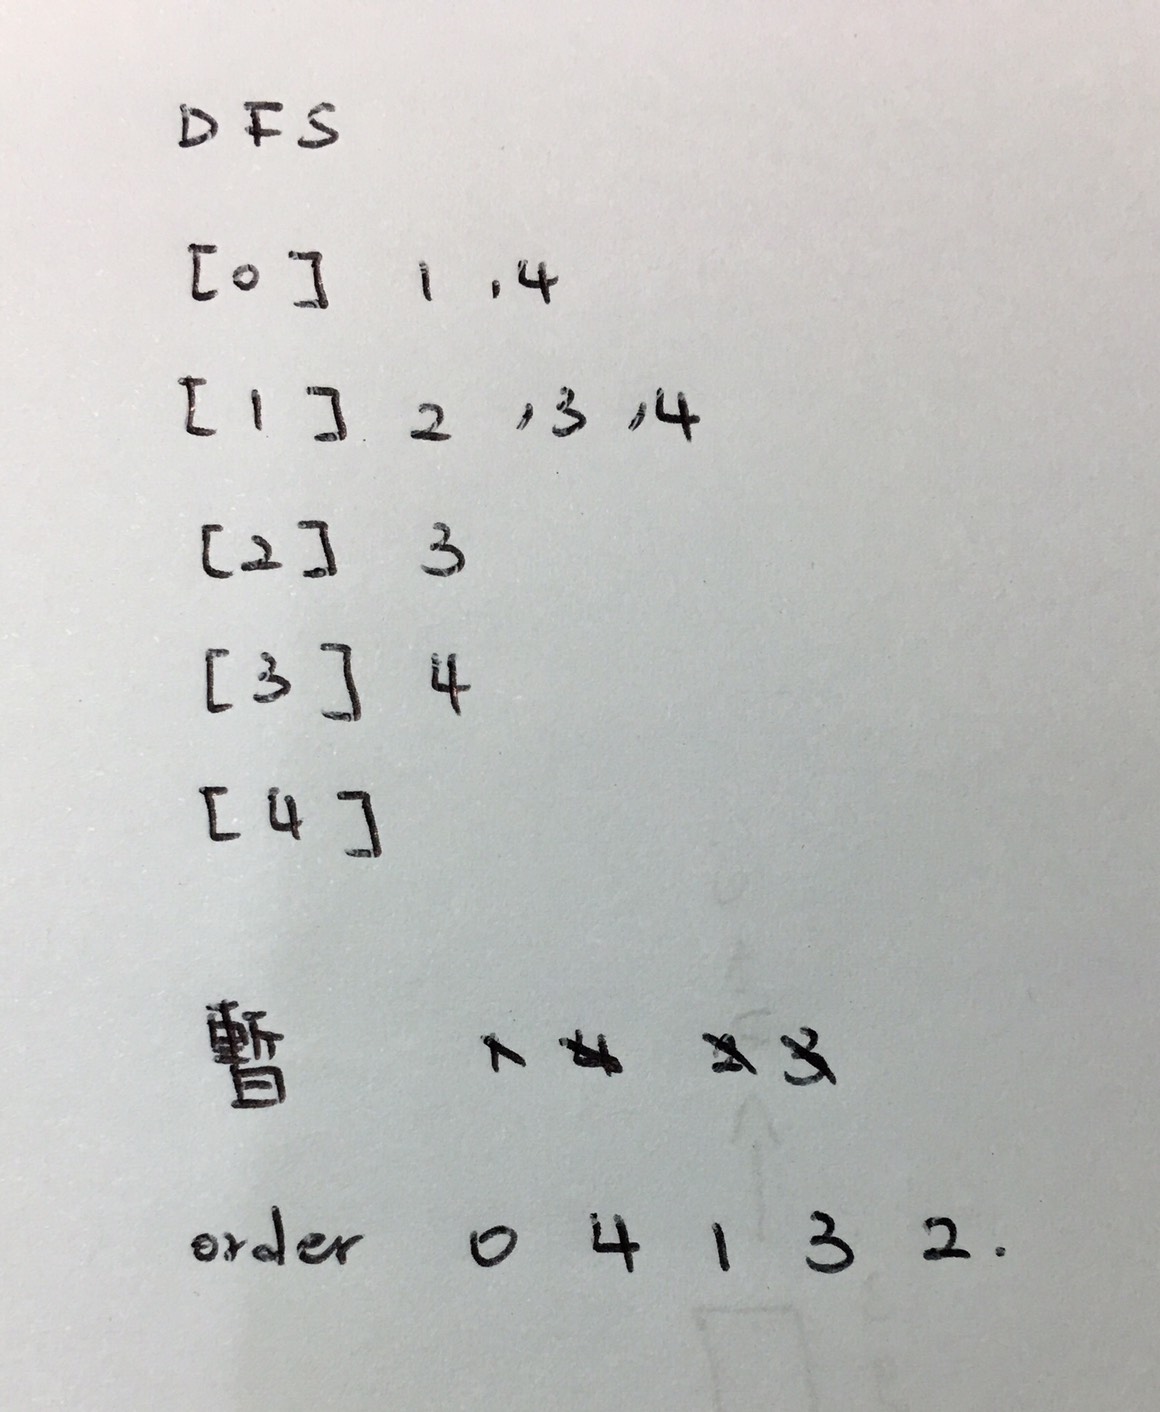 DFS
[0] 1 , 4
[1] 2 , 3 , 4
[2] 3
[3] 4
[4]
暫 1 4 2 3
order 0 4 1 3 2.